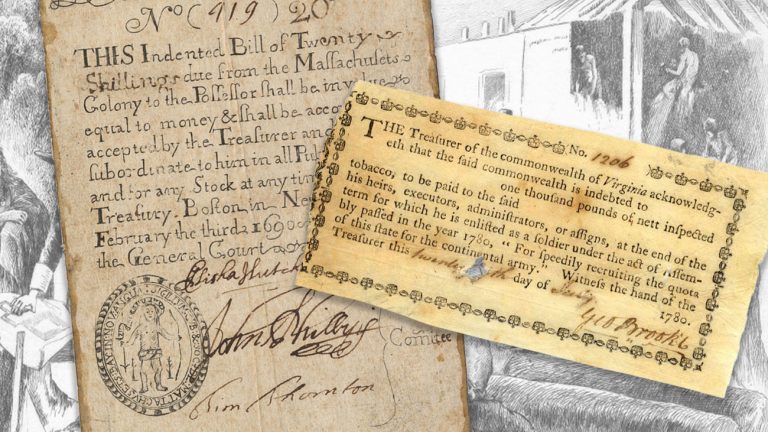 No (919) 20
THIS Indented Bill of Twenty
Shillings due from the Massachusets
Colony to the Possessor shall be in value
equal to money & shall be acco
accepted by the Treasurer and
subordinate to him in all Pu
and for any Stock at any tim
Treasury. Boston in New
February the third 1690
the General Court
Elisha Hutch
John Phillips
Tim Thornton
Comtee
No. 1206
THE Treasurer of the commonwealth of Virginia acknowledg-
eth that the said commonwealth is indebted to
one thousand pounds of nett inspected
tobacco, to be paid to the said
his heirs, executors, administrators, or assigns, at the end of the
term for which he is enlisted as a soldier under the act of Assem-
bly passed in the year 1780, "For speedily recruiting the quota
of this state for the continental army." Witness the hand of the
Treasurer this day of 1780.
Geo Brooke